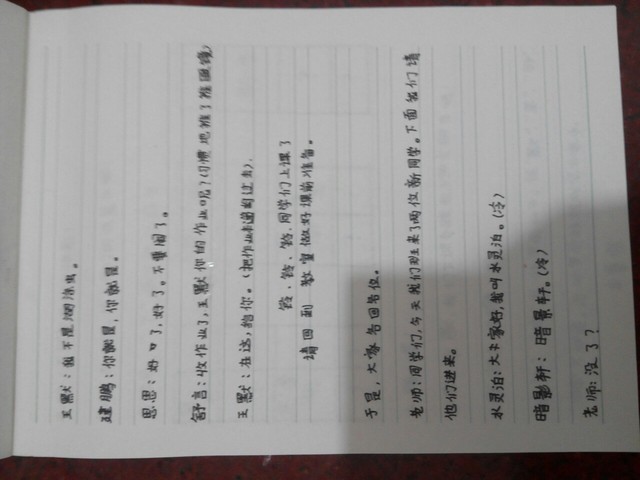 王默:我不是胡涂虫。
建鹏:你就是,你就是。
思思:好了,好了。不要闹了。
舒言:收作业了,王默你的作业呢?(习惯地推了推眼镜)
王默:在这,给你。(把作业本递过去).
铃、铃、铃、同学们上课了
请回到教室做好课前准备。
于是,大家各回各位。
老师:同学们,今天我们班来了两位新同学。下面我们请
他们进来。
水灵泊:大家好,我叫水灵泊。(冷)
暗影轩:暗景轩。(冷)
老师:没了?